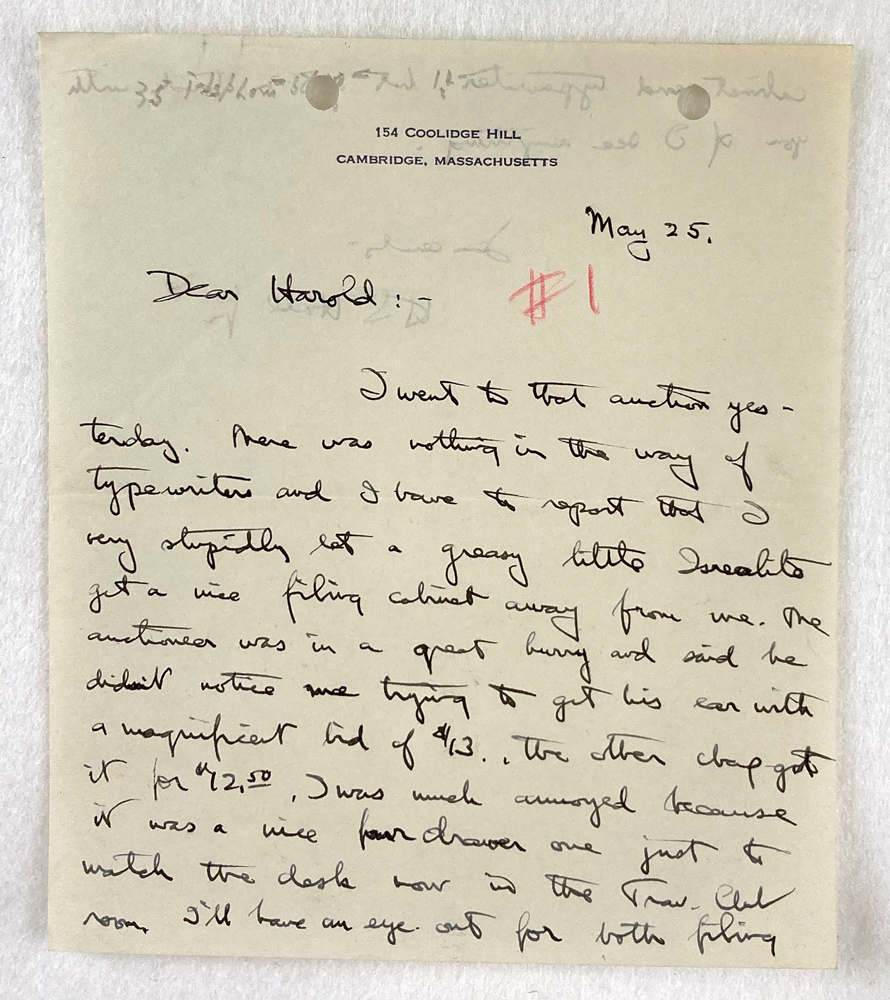 154 COOLIDGE HILL
CAMBRIDGE, MASSACHUSETTS
May 25.
Dear Harold:-
#1
I went to that auction yes-
terday. There was nothing in the way of
typewriters and I have to report that I
very stupidly let a greasy little Isrealite
get a nice filing cabinet away from me. The
auctioneer was in a great hurry and said he
didn't notice me trying to get his ear with
a magnificent bid of $13., the other chap got
it for $12.50, I was much annoyed because
it was a nice four drawer one just to
match the desk now in the Trav. Club
room. I'll have an eye out for both filing